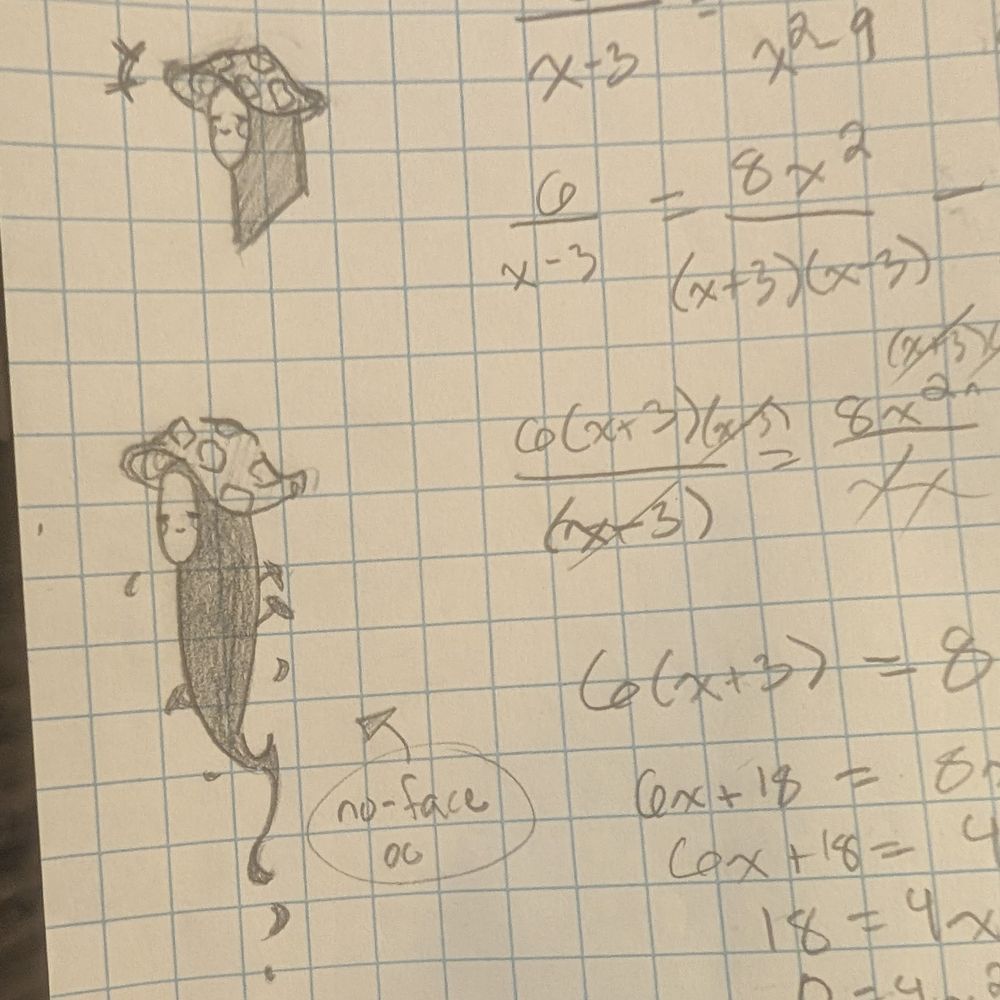 x-3 = x²-9
6/(x-3) = 8x²/((x+3)(x-3)) -
(x+3)(
6(x+3)(x-3)/(x-3) = 8x²
6(x+3) = 8
6x+18 = 8
6x+18 = 4
18 = 4x
no-face
oc